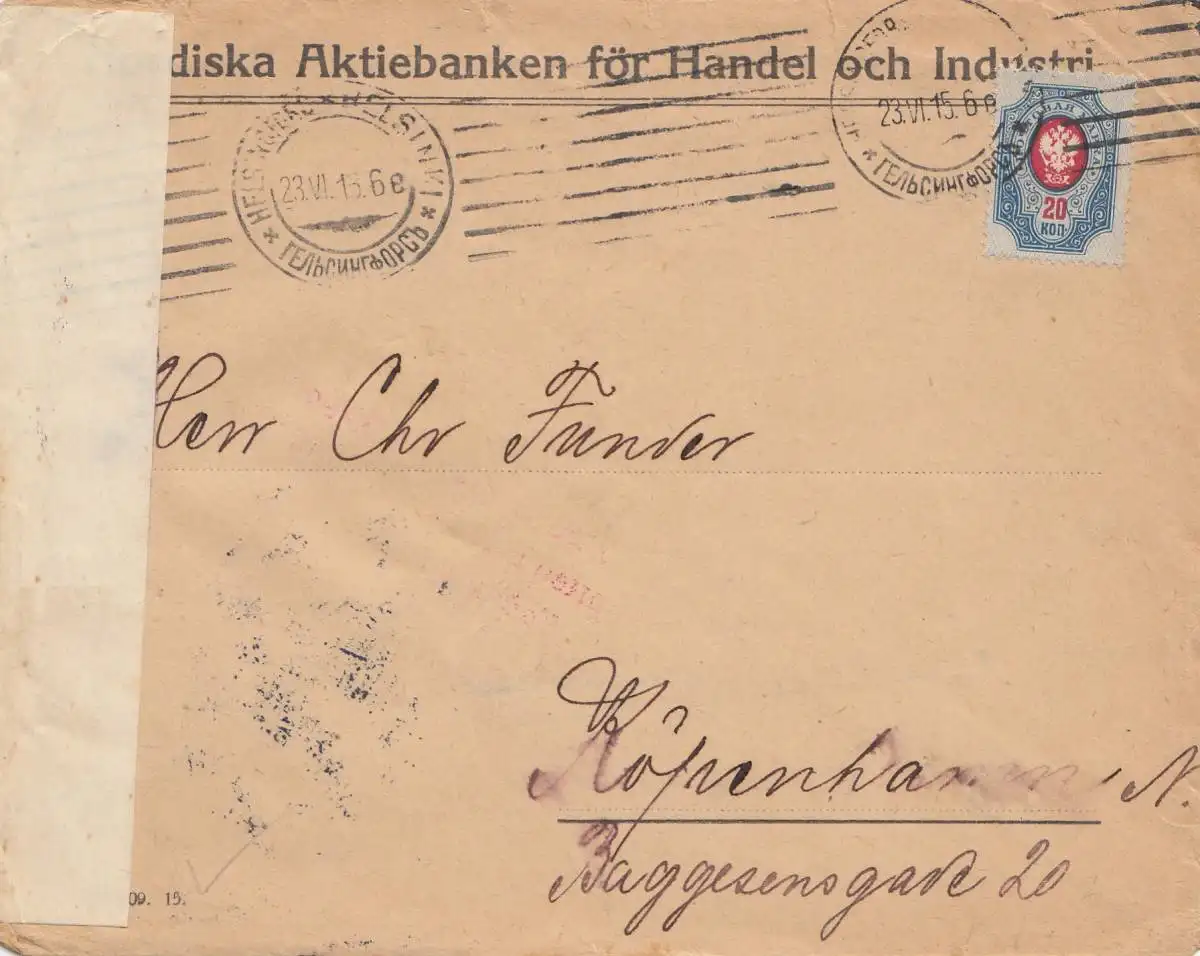 diska Aktiebanken för Handel och Industri
HELSINKI
23.VI.15.6e
ГЕЛЬСИНГФОРСЪ
23.VI.15.6e
ГЕЛЬСИНГФОРСЪ
МАРКА
20
КОП.
Herr Chr Funder
Köpenhamn, N.
Baggesensgade 20
09. 15.